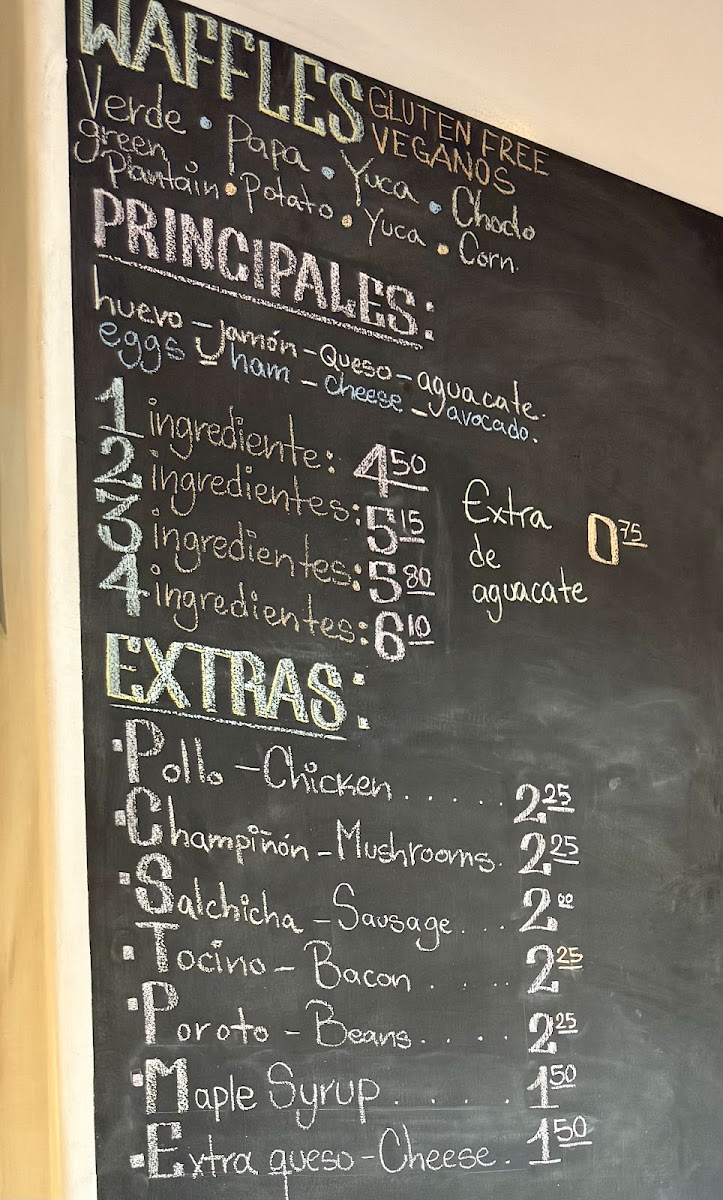 WAFFLES GLUTEN FREE
VEGANOS
Verde • Papa • Yuca • Choclo
green Plantain • Potato • Yuca • Corn.
PRINCIPALES:
huevo - Jamón - Queso - aguacate.
eggs - ham - cheese - avocado.
1 ingrediente: 4 50
2 ingredientes: 5 15
3 ingredientes: 5 80
4 ingredientes: 6 10
Extra
de
aguacate
0 75
EXTRAS:
Pollo - Chicken ..... 2 25
Champiñón - Mushrooms. 2 25
Salchicha - Sausage... 2 00
Tocino - Bacon .... 2 25
Poroto - Beans..... 2 25
Maple Syrup ..... 1 50
Extra queso - Cheese. 1 50